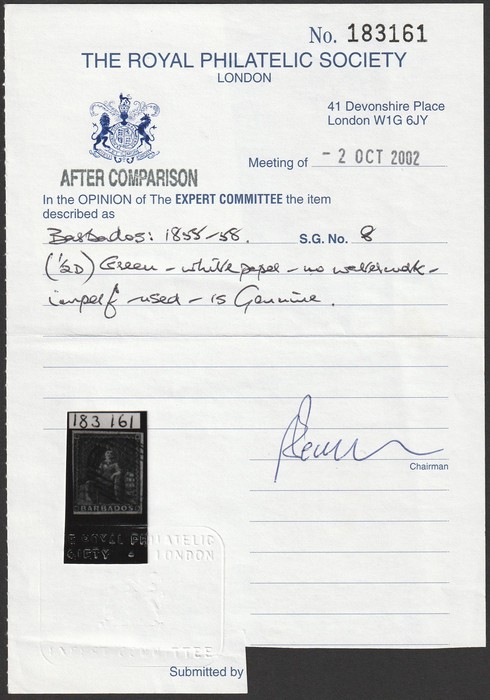 No. 183161
THE ROYAL PHILATELIC SOCIETY
LONDON
41 Devonshire Place
London W1G 6JY
Meeting of - 2 OCT 2002
AFTER COMPARISON
In the OPINION of The EXPERT COMMITTEE the item
described as
Barbados: 1855-58. S.G. No. 8
(½D) Green - white paper - no watermark -
imperf - used - is Genuine.
183 161
BARBADOS
Chairman
E ROYAL PHILATELIC
CIETY LONDON
EXPERT COMMITTEE
Submitted by